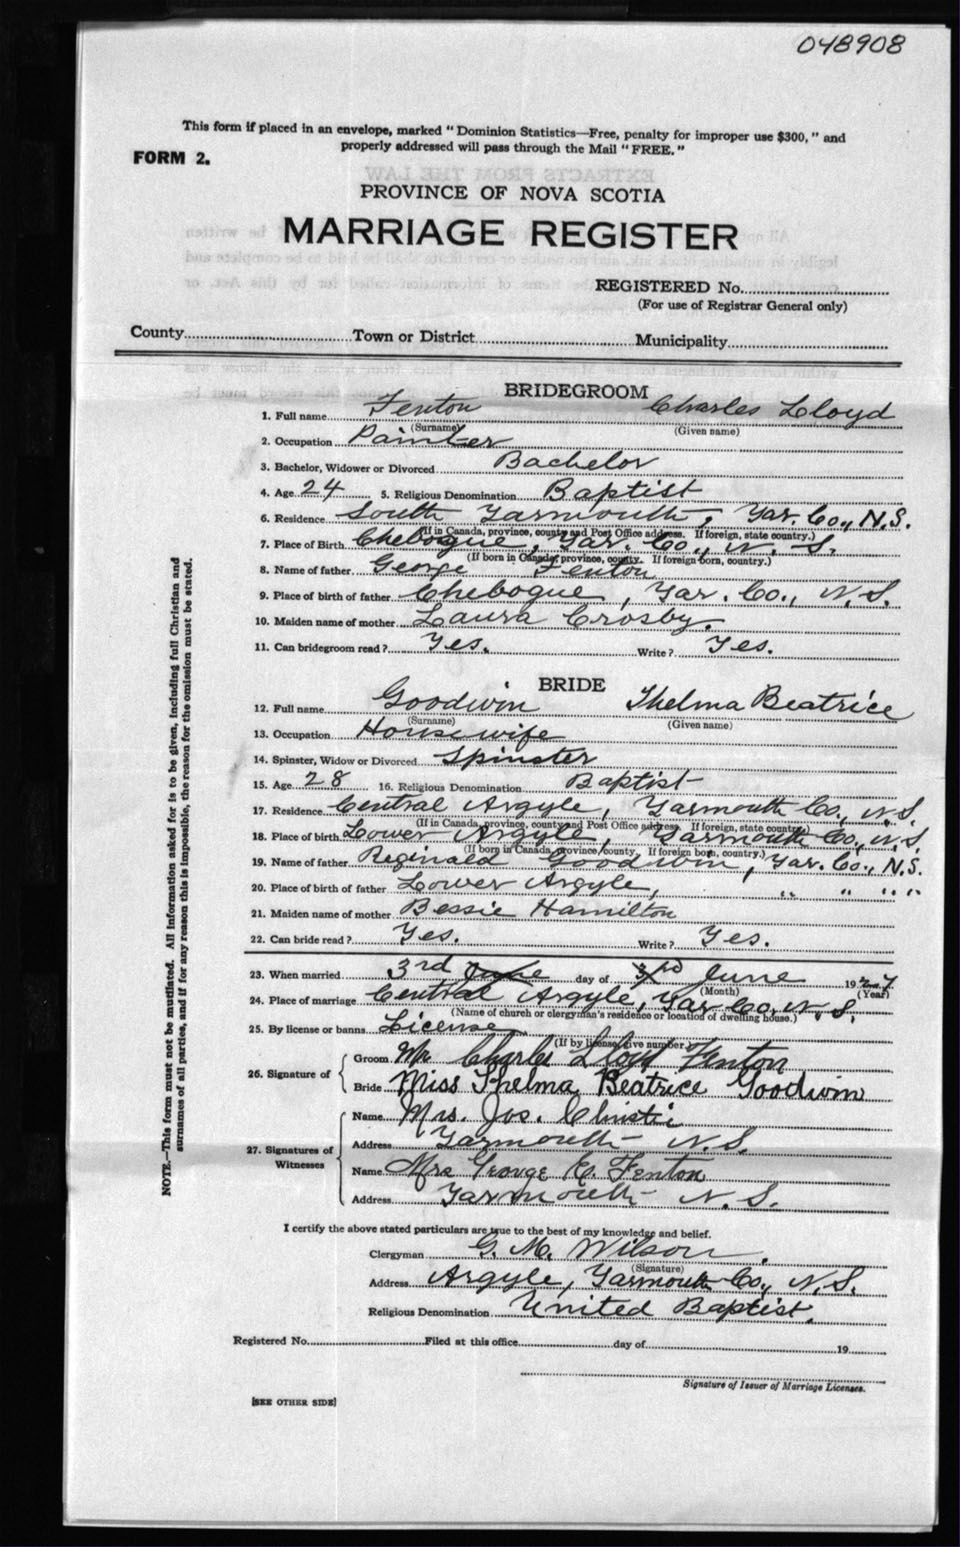 048908
This form if placed in an envelope, marked "Dominion Statistics—Free, penalty for improper use $300," and
properly addressed will pass through the Mail "FREE."
FORM 2.
PROVINCE OF NOVA SCOTIA
MARRIAGE REGISTER
REGISTERED No.
(For use of Registrar General only)
County Town or District Municipality
BRIDEGROOM
1. Full name Fenton Charles Lloyd
(Surname) (Given name)
2. Occupation Painter
3. Bachelor, Widower or Divorced Bachelor
4. Age 24 5. Religious Denomination Baptist
6. Residence South Yarmouth, Yar. Co., N.S.
(If in Canada, province, county and Post Office address. If foreign, state country.)
7. Place of Birth Chebogue, Yar. Co., N. S.
(If born in Canada, province, county. If foreign born, country.)
8. Name of father George Fenton
9. Place of birth of father Chebogue, Yar. Co., N.S.
10. Maiden name of mother Laura Crosby.
11. Can bridegroom read? Yes. Write? Yes.
BRIDE
12. Full name Goodwin Thelma Beatrice
(Surname) (Given name)
13. Occupation Housewife
14. Spinster, Widow or Divorced Spinster
15. Age 28 16. Religious Denomination Baptist
17. Residence Central Argyle, Yarmouth Co., N.S.
(If in Canada, province, county and Post Office address. If foreign, state country.)
18. Place of birth Lower Argyle, Yarmouth Co., N.S.
(If born in Canada, province, county. If foreign born, country.)
19. Name of father Reginald Goodwin, Yar. Co., N.S.
20. Place of birth of father Lower Argyle, " " " "
21. Maiden name of mother Bessie Hamilton
22. Can bride read? Yes. Write? Yes.
23. When married 3rd June day of 3rd June 19
(Month) (Year)
24. Place of marriage Central Argyle, Yar Co., N. S.
(Name of church or clergyman's residence or location of dwelling house.)
25. By license or banns License
(If by license, give number)
26. Signature of
Groom Mr Charles Lloyd Fenton
Bride Miss Thelma Beatrice Goodwin
27. Signatures of Witnesses
Name Mrs. Jos. Christie
Address Yarmouth N.S.
Name Mrs George C. Fenton
Address Yarmouth N. S.
I certify the above stated particulars are true to the best of my knowledge and belief.
Clergyman G. M. Wilson.
(Signature)
Address Argyle, Yarmouth Co., N.S.
Religious Denomination United Baptist.
Registered No. Filed at this office day of 19
Signature of Issuer of Marriage Licenses.
[SEE OTHER SIDE]
NOTE.—This form must not be mutilated. All information asked for is to be given, including full Christian and
surnames of all parties, and if for any reason this is impossible, the reason for the omission must be stated.